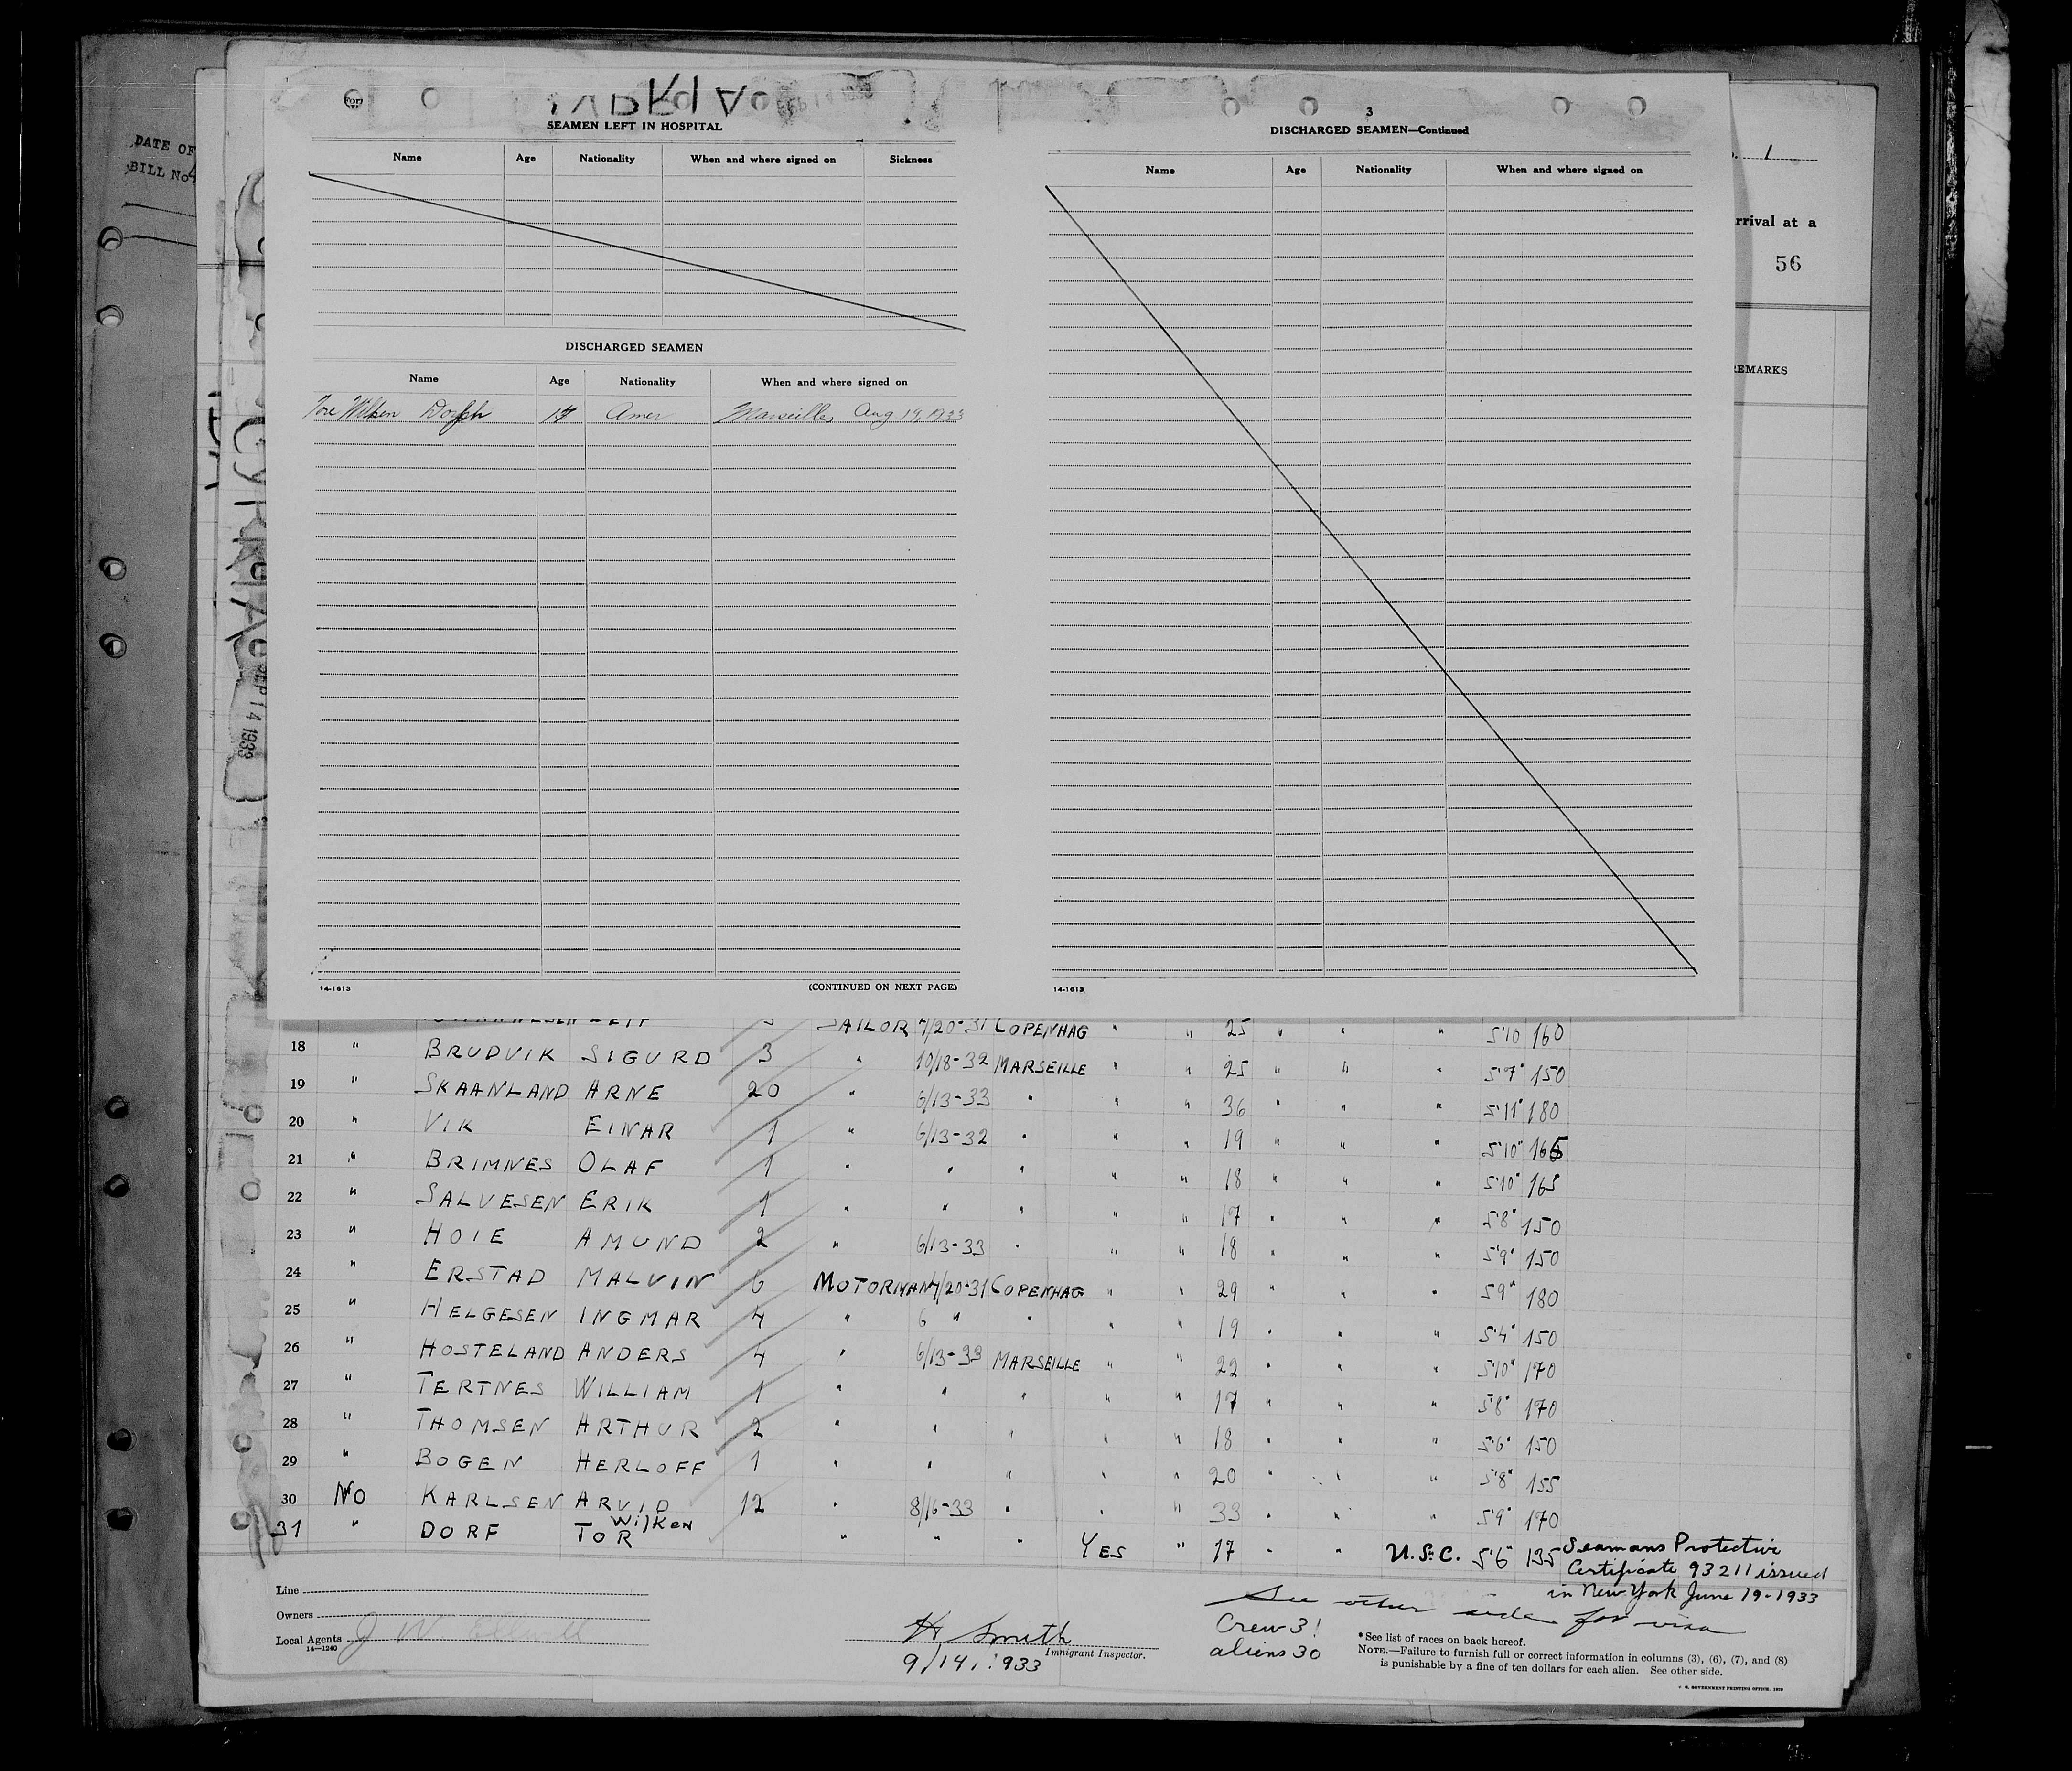 DATE OF
BILL No
SEP 14 1933
3
SEAMEN LEFT IN HOSPITAL
Name Age Nationality When and where signed on Sickness
DISCHARGED SEAMEN
Name Age Nationality When and where signed on
Tore Wilken Dorph 17 Amer Marseilles Aug 19, 1933
14-1613 (CONTINUED ON NEXT PAGE)
DISCHARGED SEAMEN—Continued
Name Age Nationality When and where signed on
14-1613
1
rrival at a
56
REMARKS
SEP 14 1933
SAILOR 4/20-31 COPENHAG " " 25 " " " 5'10 160
18 " BRUDVIK SIGURD 3 " 10/18-32 MARSEILLE " " 25 " " " 5'7" 150
19 " SKAANLAND ARNE 20 " 6/13-33 " " " 36 " " " 5'11" 180
20 " VIK EINAR 1 " 6/13-32 " " " 19 " " " 5'10" 165
21 " BRIMNES OLAF 1 " " " " " 18 " " " 5'10" 165
22 " SALVESEN ERIK 1 " " " " " 17 " " " 5'8" 150
23 " HOIE AMUND 2 " 6/13-33 " " " 18 " " " 5'9" 150
24 " ERSTAD MALVIN 6 MOTORMAN 4/20-31 COPENHAG " " 29 " " " 5'9" 180
25 " HELGESEN INGMAR 4 " 6 " " " " 19 " " " 5'4" 150
26 " HOSTELAND ANDERS 4 " 6/13-33 MARSEILLE " " 22 " " " 5'10" 170
27 " TERTNES WILLIAM 1 " " " " " 17 " " " 5'8" 170
28 " THOMSEN ARTHUR 2 " " " " " 18 " " " 5'6" 150
29 " BOGEN HERLOFF 1 " " " " " 20 " " " 5'8" 155
30 NO KARLSEN ARVID 12 " 8/16-33 " " " 33 " " " 5'9" 170
31 " DORF TOR Wilken " " " YES " 17 " " U.S.C. 5'6" 135 Seamans Protective
Certificate 93211 issued
in New York June 19-1933
See other side for visa
Line
Owners
Local Agents J W Elwell
14—1240
H Smith
Immigrant Inspector.
9/14/1933
Crew 31
aliens 30
*See list of races on back hereof.
NOTE.—Failure to furnish full or correct information in columns (3), (6), (7), and (8)
is punishable by a fine of ten dollars for each alien. See other side.
U. S. GOVERNMENT PRINTING OFFICE. 1929